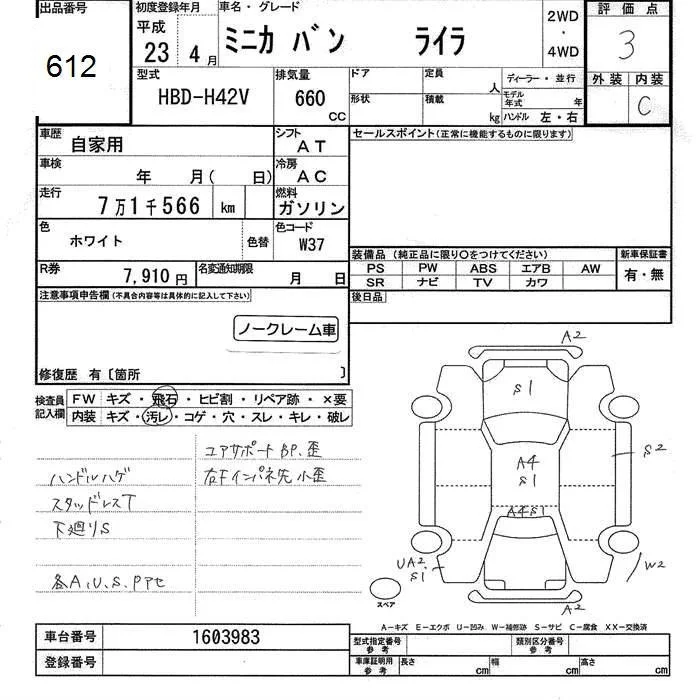 出品番号
612
初度登録年月
平成
23 4月
車名・グレード
ミニカ バン ライラ
2WD
・
4WD
評価点
3
外装 内装
C
型式
HBD-H42V
排気量
660
CC
ドア
定員
人
形状
積載
kg
ディーラー・並行
モデル年式 年
ハンドル 左・右
車歴
自家用
シフト
AT
車検
年 月( 日)
冷房
AC
走行
7万1千566 km
燃料
ガソリン
色
ホワイト
色替
色コード
W37
R券
7,910円
名変通知期限
月 日
セールスポイント(正常に機能するものに限ります)
装備品 (純正品に限り○をつけてください)
PS PW ABS エアB AW
SR ナビ TV カワ
新車保証書
有・無
後日品
注意事項申告欄(不具合内容等は具体的に記入して下さい)
ノークレーム車
修復歴 有〔箇所 〕
検査員記入欄
FW キズ・飛石・ヒビ割・リペア跡・×要
内装 キズ・汚レ・コゲ・穴・スレ・キレ・破レ
コアサポートBP.歪
ハンドルハゲ
右Fインパネ先小歪
スタッドレスT
下廻りS
各A.U.S.Pアセ
A2
S1
A4
S1
A4S1
S2
UA2
S1
W2
A2
スペア
A-キズ E-エクボ U-凹み W-補修跡 S-サビ C-腐食 XX-交換済
車台番号
1603983
登録番号
型式指定番号
参考
類別区分番号
参考
車庫証明用
参考
長さ cm
幅 cm
高さ cm